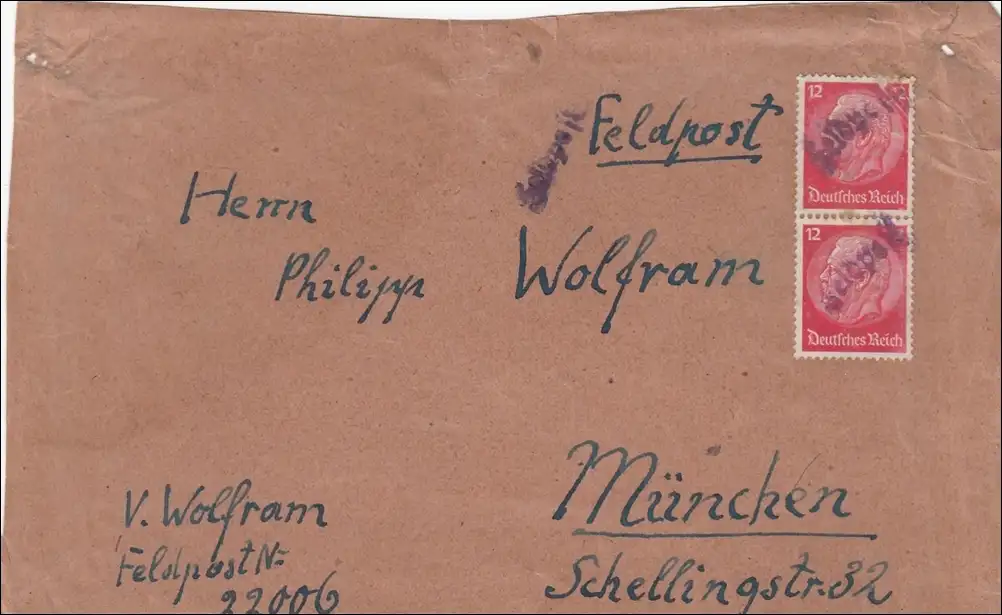 Feldpost
Feldpost
12
Deutsches Reich
12
Deutsches Reich
Herrn
Philipp Wolfram
München
Schellingstr. 32
V. Wolfram
Feldpost Nr
22006